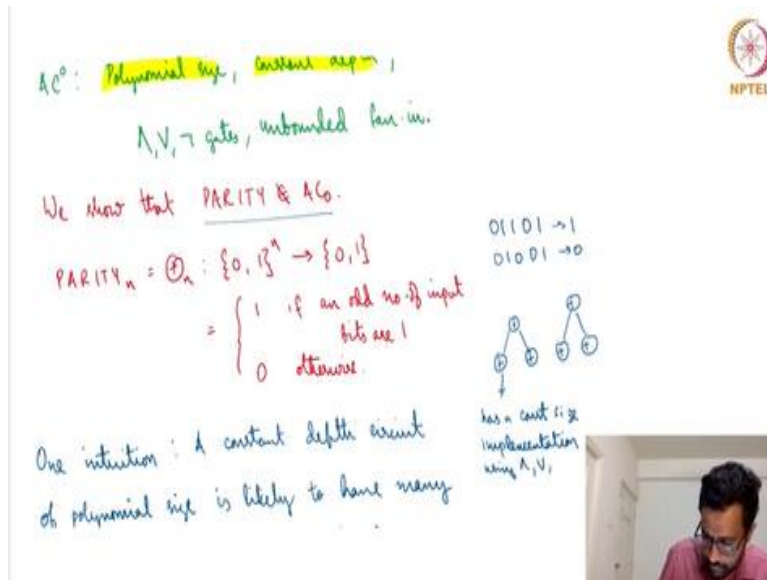 AC⁰ : Polynomial size, constant depth,
NPTEL
∧, ∨, ¬ gates, unbounded fan-in.
We show that PARITY ∉ AC₀.
PARITYₙ = ⊕ₙ : {0, 1}ⁿ → {0,1}
= { 1 if an odd no. of input
bits are 1
0 otherwise.
01101 → 1
01001 → 0
+ + + + + +
has a const size
implementation
using ∧, ∨,
One intuition : A constant depth circuit
of polynomial size is likely to have many